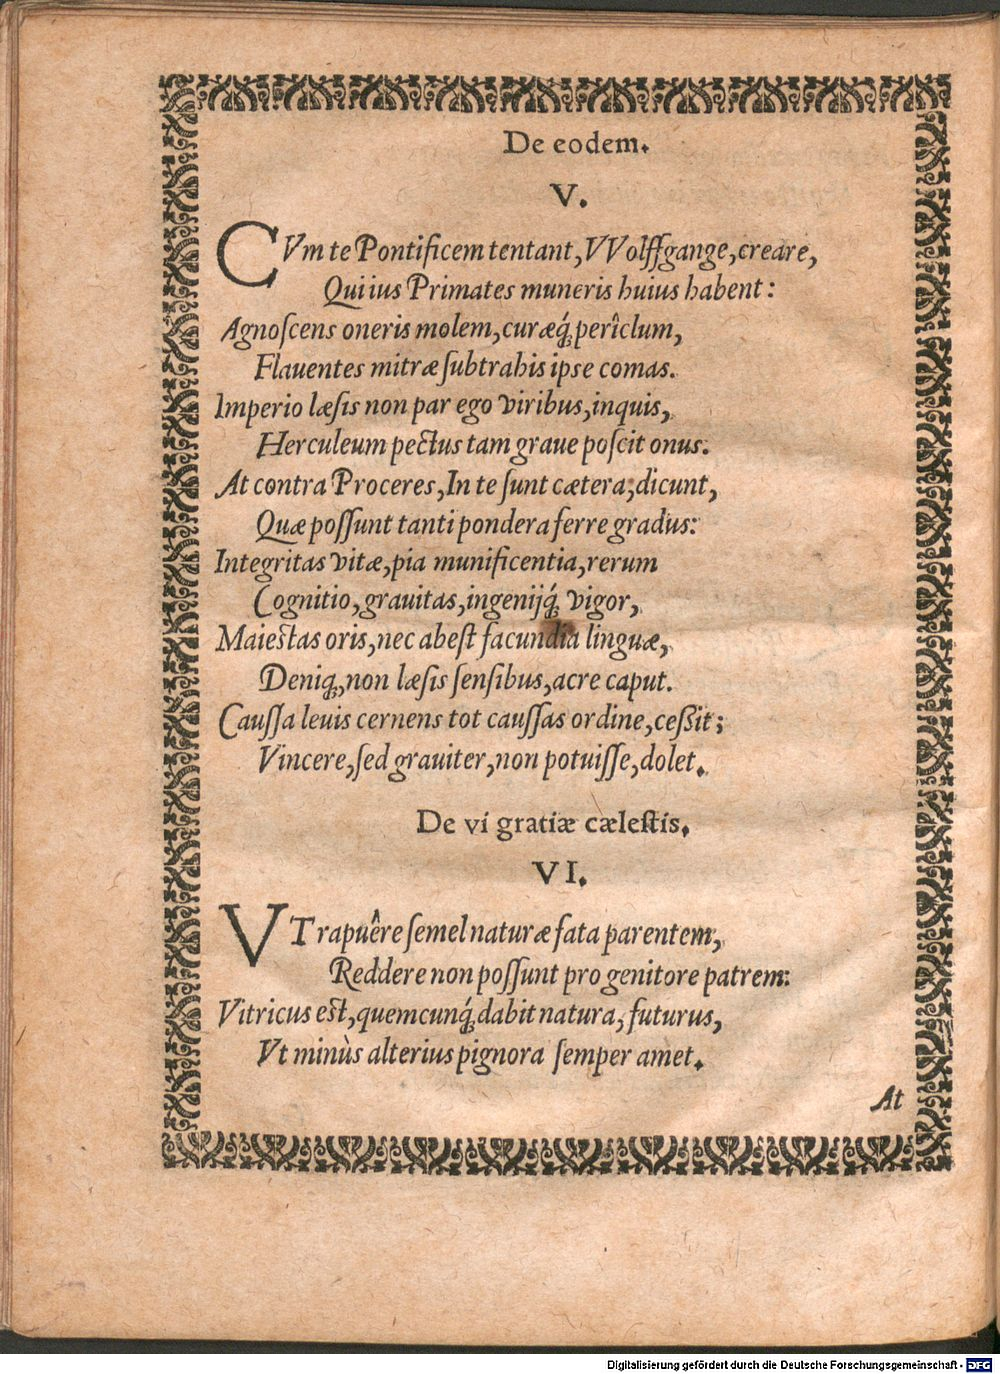 De eodem.
V.
CVm te Pontificem tentant, VVolffgange, creare,
Qui ius Primates muneris huius habent:
Agnoſcens oneris molem, curæq́; perîclum,
Flauentes mitræ ſubtrahis ipse comas.
Imperio læſis non par ego viribus, inquis,
Herculeum pectus tam graue poſcit onus.
At contra Proceres, In te ſunt cætera, dicunt,
Quæ poſſunt tanti pondera ferre gradus:
Integritas vitæ, pia munificentia, rerum
Cognitio, grauitas, ingenijq́; vigor,
Maiestas oris, nec abeſt facundia linguæ,
Deniq;, non læſis ſenſibus, acre caput.
Cauſſa leuis cernens tot cauſſas ordine, ceßit;
Vincere, ſed grauiter, non potuiſſe, dolet.
De vi gratiæ cælestis.
VI.
VT rapuêre ſemel naturæ fata parentem,
Reddere non poſſunt pro genitore patrem:
Vitricus est, quemcunq́; dabit natura, futurus,
Vt minùs alterius pignora ſemper amet.
At
Digitalisierung gefördert durch die Deutsche Forschungsgemeinschaft - DFG